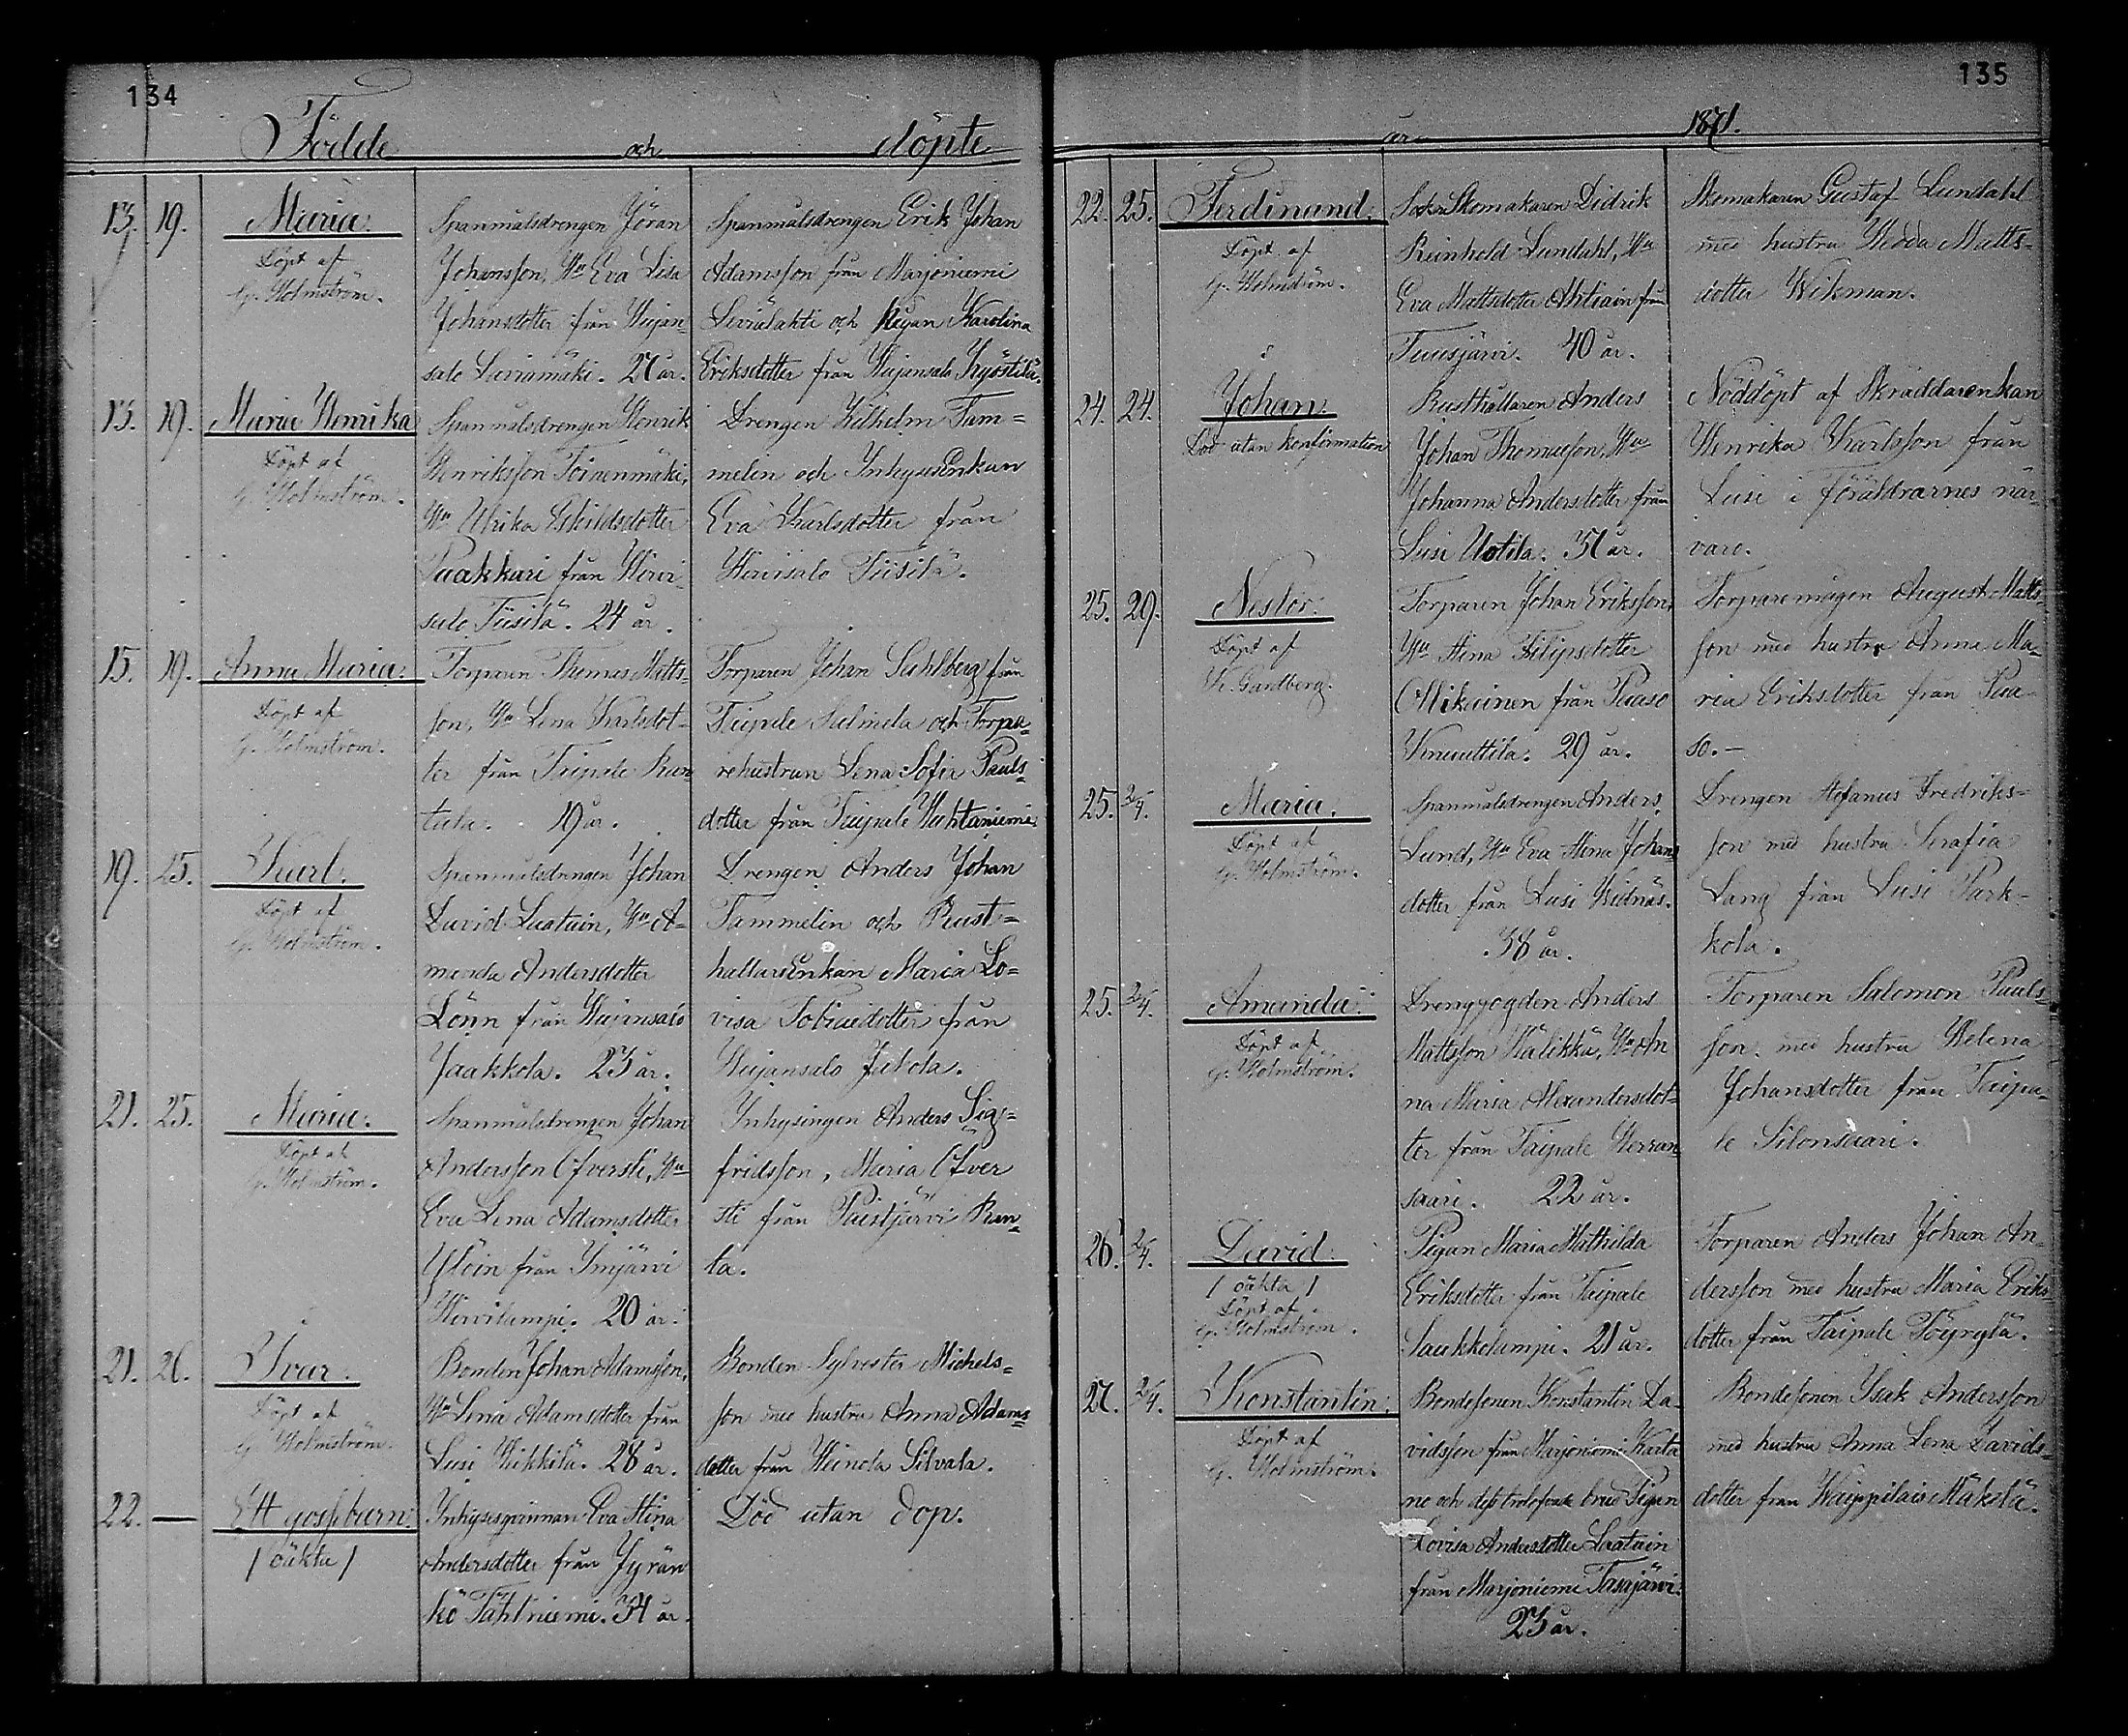 134
Födde och döpte
13. 19. Maria.
Döpt af
G. Holmström.
Spanmålsdrengen Jöran
Johansson, Hu Eva Lisa
Johansdotter från Huijan
salo Luiramäki. 27 år.
Spanmålsdrengen Erik Johan
Adamsson från Marjoniemi
Levälahti och Pigan Karolina
Eriksdotter från Huijansalo Kyöstilä.
13. 19. Maria Henrika
Döpt af
G. Holmström.
Spanmålsdrengen Henrik
Henriksson Toivenmäki,
Hu Ulrika Eskildsdotter
Paakkari från Hirvi
salo Tiisilä. 24 år.
Drengen Wilhelm Tam=
melin och Inhyses Enkan
Eva Karlsdotter från
Hirvisalo Tiisilä.
15. 19. Anna Maria.
Döpt af
G. Holmström.
Torparen Thomas Matts=
son, Hu Lena Karlsdot=
ter från Taipale Ran
tala. 19 år.
Torparen Johan Sahlberg från
Taipale Salmela och Torpa=
rehustrun Lena Sofia Pauls=
dotter från Taipale Huhtaniemi.
19. 25. Karl.
Döpt af
G. Holmström.
Spanmålsdrengen Johan
David Laatuin, Hu A=
manda Andersdotter
Lönn från Huijansalo
Jaakkola. 23 år.
Drengen Anders Johan
Tammelin och Rust=
hållars Enkan Maria Lo=
visa Tobiaedotter från
Huijansalo Jukola.
21. 25. Maria.
Döpt af
G. Holmström.
Spanmålsdrengen Johan
Andersson Öfversti, Hu
Eva Lena Adamsdotter
Ylöin från Imjärvi
Hirvilampi. 20 år.
Inhysingen Anders Sig=
fridsson, Maria Öfver
sti från Paistjärvi Ran=
ta.
21. 26. Ivar.
Döpt af
G. Holmström.
Bonden Johan Adamsson,
Hu Lena Adamsdotter från
Lusi Heikkilä. 28 år.
Bonden Sylvester Michels=
son med hustru Anna Adams=
dotter från Heinola Silvala.
22. — Ett gossebarn.
/ oäkta /
Inhysesqvinnan Eva Stina
Andersdotter från Jyrän
kö Tähtniemi. 34 år.
Död utan dop.
135
år 1871.
22. 25. Ferdinand.
Döpt af
G. Holmström.
Skomakaren Didrik
Reinhold Lundahl, Hu
Eva Mattsdotter Ahtiain från
Tuusjärvi. 40 år.
Skomakaren Gustaf Lundahl
med hustru Hedda Matts=
dotter Wikman.
24. 24. Johan.
Död utan konfirmation
Rusthållaren Anders
Johan Thomasson, Hu
Johanna Andersdotter från
Lusi Uotila. 37 år.
Nöddöpt af Skräddarenkan
Henrika Karlsson från
Lusi i föräldrarnes när=
varo.
25. 29. Nestor.
Döpt af
Gardberg.
Torparen Johan Eriksson,
Hu Stina Filipsdotter
Ollikainen från Paaso
Knuuttila. 29 år.
Torparemågen August Matts=
son med hustru Anna Ma=
ria Eriksdotter från Paa=
so.-
25. 2/4. Maria.
Döpt af
G. Holmström.
Spanmålsdrengen Anders
Lund, Hu Eva Stina Johans
dotter från Lusi Vidnäs.
38 år.
Drengen Stefanus Fredriks=
son med hustru Serafia
Lang från Lusi Park=
kola.
25. 2/4. Amanda.
Döpt af
G. Holmström.
Drengfogden Anders
Mattsson Kälikkä, Hu An
na Maria Alexandersdot=
ter från Taipale Herran
saari. 22 år.
Torparen Salomon Pauls=
son, med hustru Helena
Johansdotter från Taipa=
le Silonsaari.
26. 2/4. David.
/ oäkta /
Döpt af
G. Holmström.
Pigan Maria Mathilda
Eriksdotter från Taipale
Saukkolampi. 21 år.
Torparen Anders Johan An
dersson med hustru Maria Eriks=
dotter från Taipale Töyrylä.
27. 2/4. Konstantin.
Döpt af
G. Holmström.
Bondesonen Konstantin Da=
vidsson från Marjoniemi Karta
no och dess trolofvade brud Pigan
Lovisa Andersdotter Laatuin
från Marjoniemi Tasajärvi.
23 år.
Bondesonen Isak Andersson
med hustru Anna Lena Davids=
dotter från Waippilais Mäkelä.